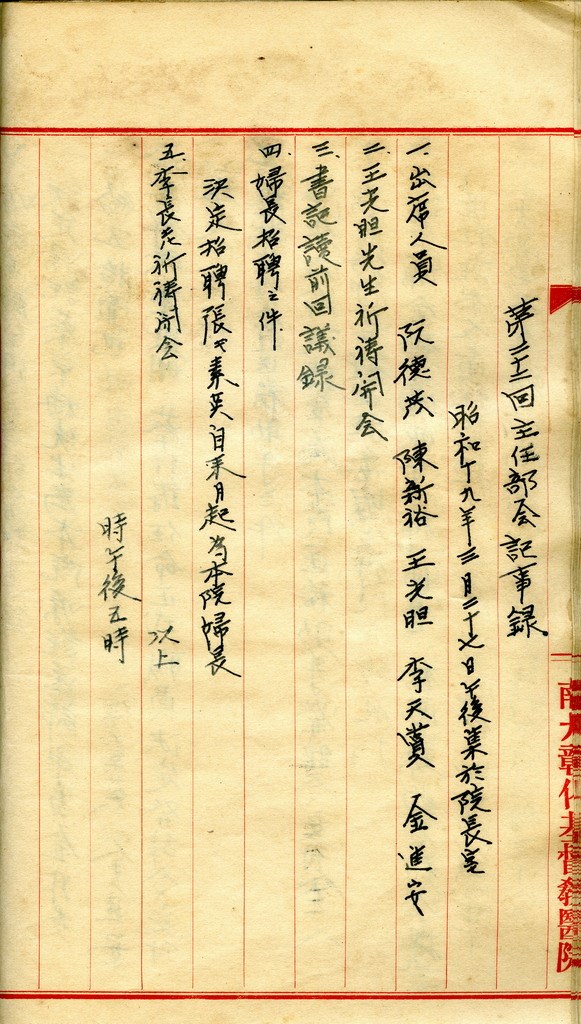 第二十二回主任部会記事録
昭和十九年三月二十七日午後集於院長室
一、出席人員 阮德茂 陳新裕 王光胆 李天賞 金進安
二、王光胆先生祈禱開会
三、書記讀前回議録
四、婦長招聘之件
決定招聘張氏素英自来月起为本院婦長
五、李長老祈禱閉会
以上
時午後五時
彰化基督教醫院